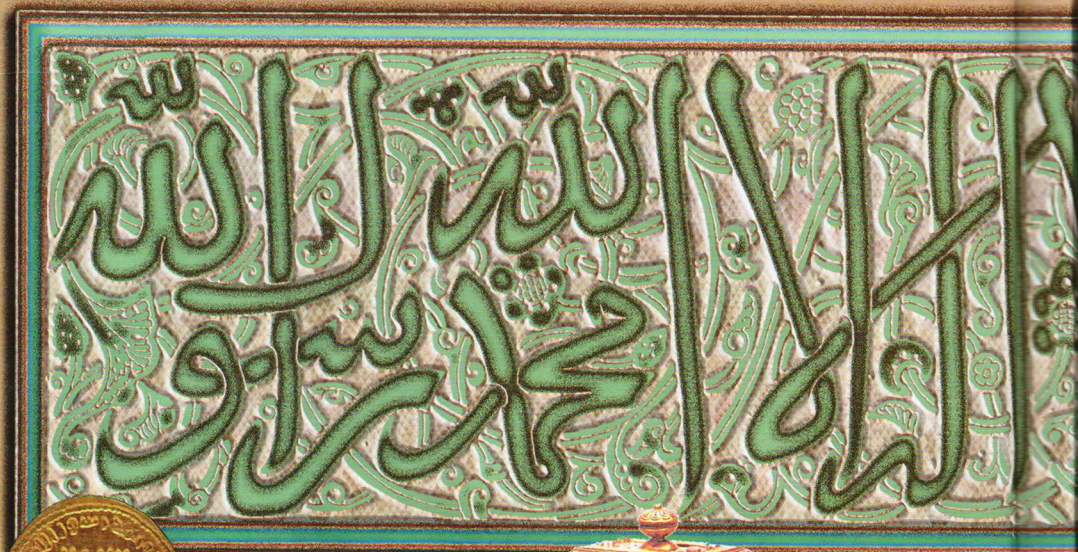 اله الا الله
محمد رسول الله